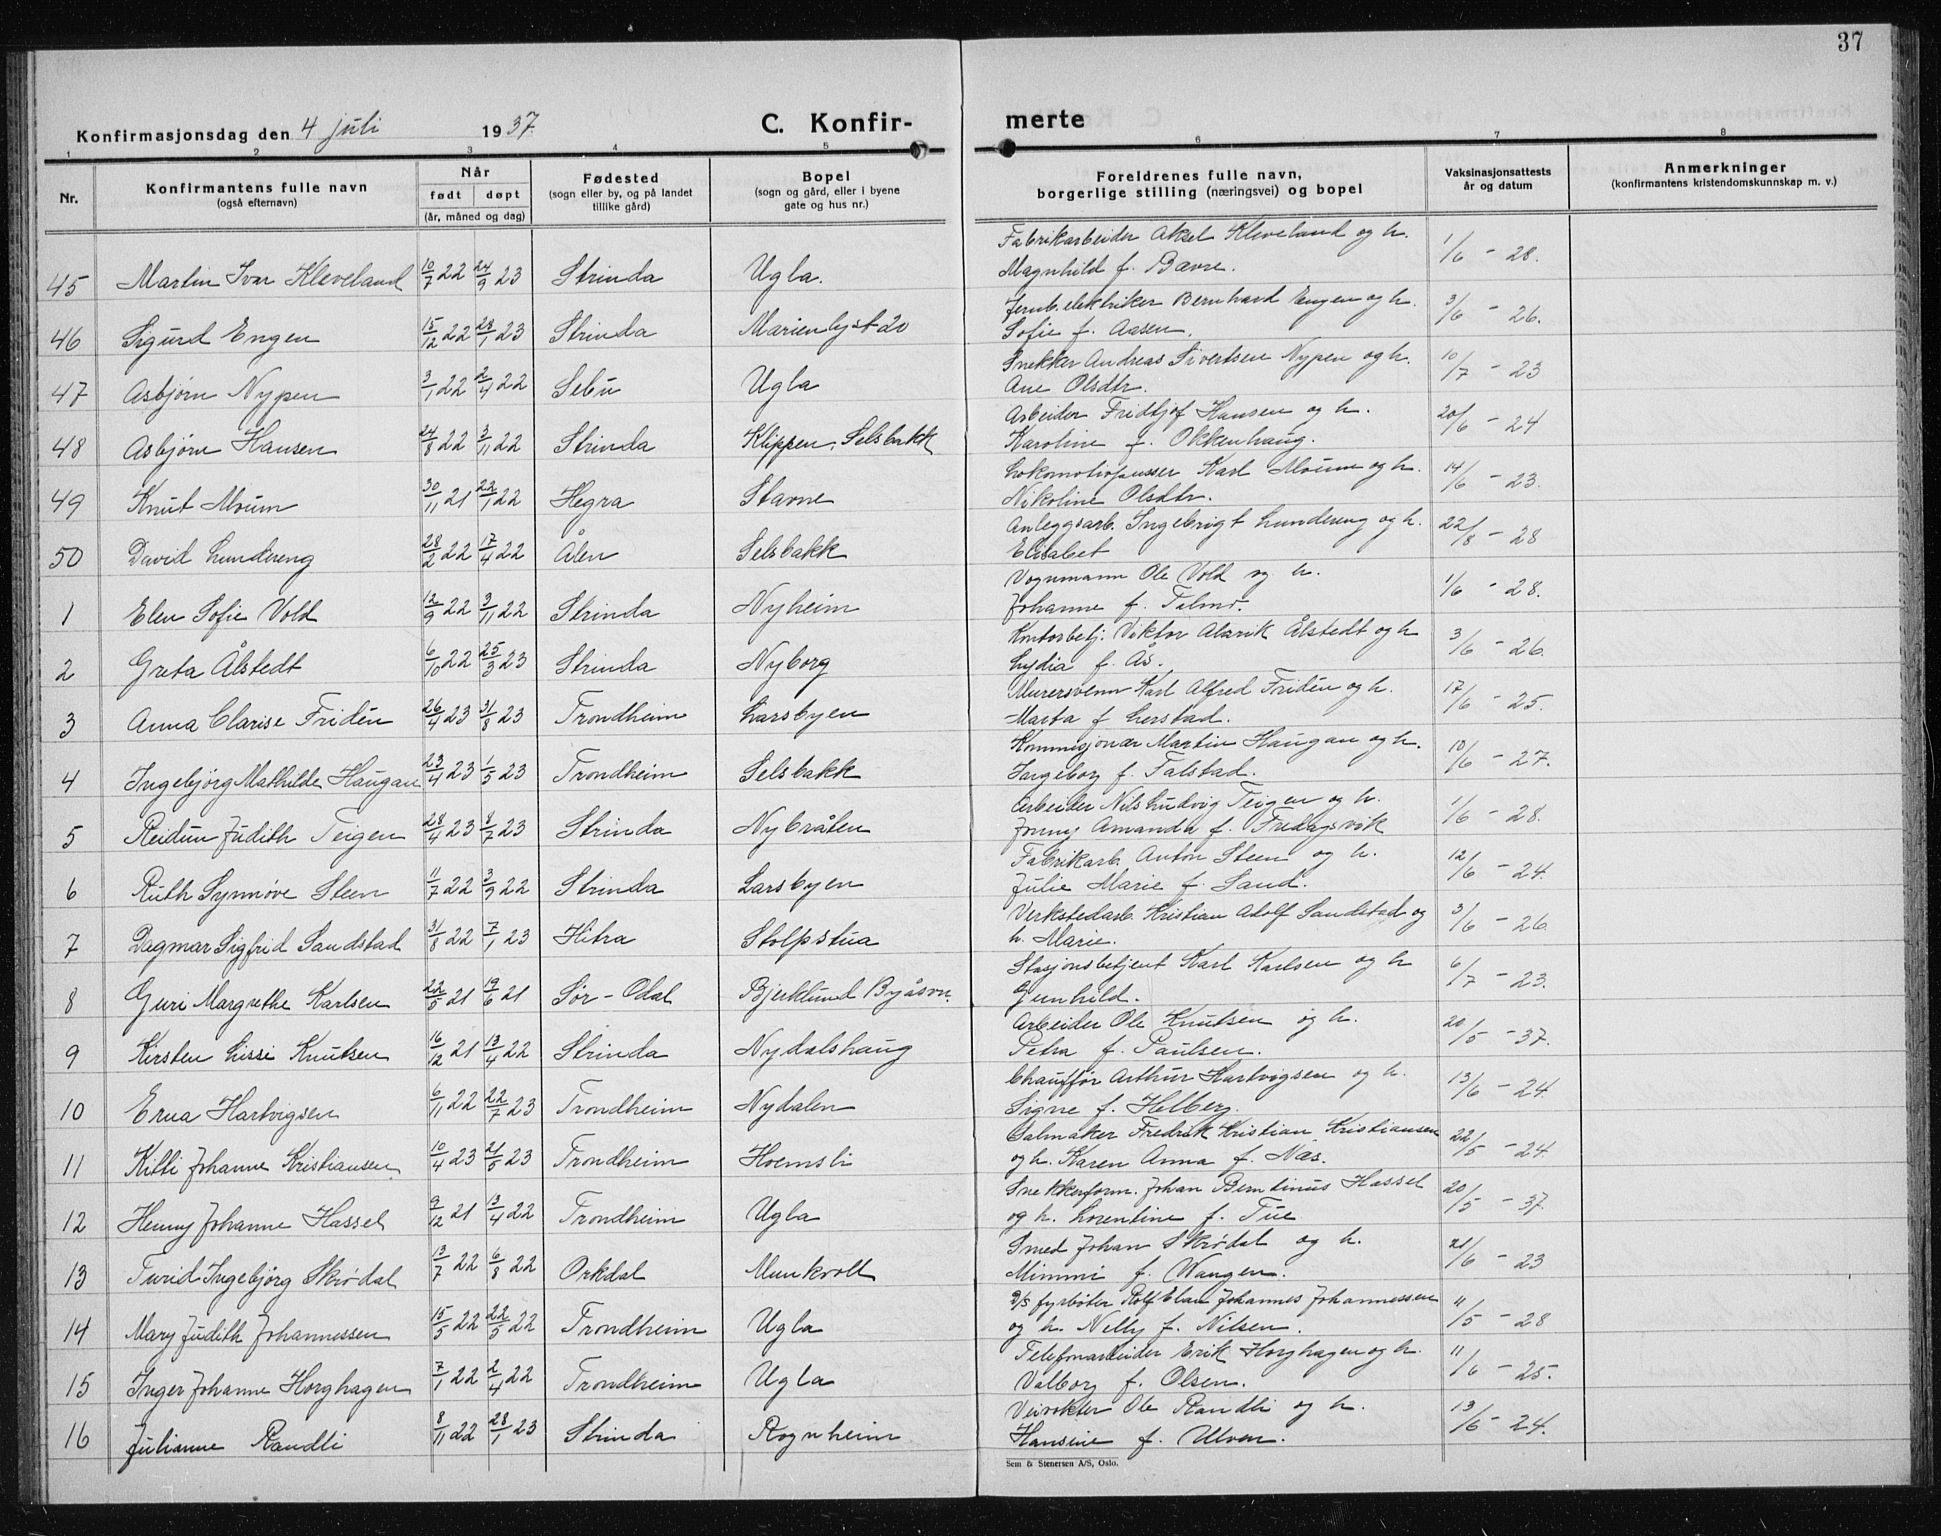 37
Konfirmasjonsdag den 4 juli 1937. C. Konfirmerte
1 2 3 4 5 6 7 8
Nr. Konfirmantens fulle navn (også efternavn) Når født døpt (år, måned og dag) Fødested (sogn eller by, og på landet tillike gård) Bopel (sogn og gård, eller i byene gate og hus nr.) Foreldrenes fulle navn, borgerlige stilling (næringsvei) og bopel Vaksinasjonsattests år og datum Anmerkninger (konfirmantens kristendomskunnskap m. v.)
45 Martin Ivar Kleveland 10/7 22 24/9 23 Strinda Ugla. Fabrikarbeider Aksel Kleveland og h. Magnhild f. Bavre. 1/6 - 28.
46 Sigurd Engen 15/12 22 28/1 23 Strinda Marienlyst 20 Jernb.elektriker Bernhard Engen og h. Sofie f. Aasen. 3/6 - 26.
47 Asbjørn Nypen 3/1 22 2/4 22 Selbu Ugla Snekker Andreas Sivertsen Nypen og h. Ane Olsdtr. 10/7 - 23
48 Asbjørn Hansen 24/8 22 3/11 22 Strinda Klippen, Selsbakk Arbeider Fridtjof Hansen og h. Karoline f. Okkenhaug. 20/6 - 24
49 Knut Moum 30/11 21 22/1 22 Hegra Stavne Lokomotivpusser Karl Moum og h. Nikoline Olsdtr. 14/6 - 23.
50 David Lundereng 28/2 22 17/4 22 Ålen Selsbakk Anleggsarb. Ingebrigt Lundereng og h. Elisabet 22/8 - 28
1 Elen Sofie Vold 12/9 22 3/11 22 Strinda Nyheim Vognmann Ole Vold og h. Johanne f. Talmo. 1/6 - 28.
2 Greta Ålstedt 6/10 22 25/3 23 Strinda Nyborg Kontorbetj. Viktor Alarik Ålstedt og h Lydia f. Ås. 3/6 - 26.
3 Anna Clarise Fridén 26/4 23 31/8 23 Trondheim Larsbyen Murersvenn Karl Alfred Fridén og h. Marta f Lerstad. 17/6 - 25.
4 Ingebjørg Mathilde Haugan 23/4 23 1/5 23 Trondheim Selsbakk Kommisjonær Martin Haugan og h. Ingeborg f. Falstad. 10/6 - 27.
5 Reidun Judith Teigen 28/4 23 8/7 23 Strinda Nybråten Arbeider Nils Ludvig Teigen og h. Jenny Amanda f. Fredagsvik 1/6 - 28.
6 Ruth Synnøve Steen 11/7 22 3/9 22 Strinda Larsbyen Fabrikarb. Anton Steen og h. Julie Marie f. Sand. 12/6 - 24.
7 Dagmar Sigfrid Sandstad 31/8 22 7/1 23 Hitra Stolpstua Verkstedarb. Kristian Adolf Sandstad og h. Marie. 3/6 - 26.
8 Guri Margrethe Karlsen 22/5 21 19/6 21 Sør-Odal Bjerklund Byåsvn. Stasjonsbetjent Karl Karlsen og h Gunhild. 6/7 - 23.
9 Kirsten Lissi Knutsen 16/12 21 13/4 22 Strinda Nydalshaug Arbeider Ole Knutsen og h. Petra f. Paulsen. 20/5 - 37.
10 Erna Hartvigsen 6/11 22 22/7 23 Trondheim Nydalen Chauffør Arthur Hartvigsen og h. Signe f. Helberg. 13/6 - 24.
11 Kitti Johanne Kristiansen 10/4 23 21/5 23 Trondheim Hoemsli Salmaker Fredrik Kristian Kristiansen og h. Karen Anna f. Næs. 22/5 - 24.
12 Henny Johanne Hassel 9/12 21 13/4 22 Trondheim Ugla Snekkerform. Johan Berntinus Hassel og h. Lorentine f. Tue 20/5 - 37.
13 Turid Ingebjörg Skrødal 13/7 22 6/8 22 Orkdal Munkvoll Smed Johan Skrødal og h. Mimmi f. Wangen. 21/6 - 23
14 Mary Judith Johannessen 15/5 22 22/5 22 Trondheim Ugla D/S fyrbøter Rolf Elan Johannes Johannessen og h. Nelly f. Nilsen. 11/5 - 28
15 Inger Johanne Horghagen 7/1 22 2/4 22 Trondheim Ugla Telefonarbeider Erik Horghagen og h. Valborg f. Olsen. 11/6 - 25.
16 Julianne Randli 8/11 22 28/1 23 Strinda Rognheim Veivokter Ole Randli og h. Hansine f. Ulven. 13/6 - 24.
Sem & Stenersen A/S, Oslo.